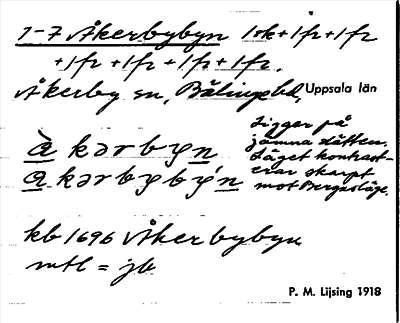 1-7 Åkerbybyn 1sk+1fr+1fr
+1fr +1fr +1fr+1fr.
Åkerby sn, Bälinge hd, Uppsala län
Ligger på
jämna slätten.
Läget kontrast-
erar skarpt
mot Bergasläge.
kb 1696 Åkerbybyn
mtl = jb
P. M. Lijsing 1918